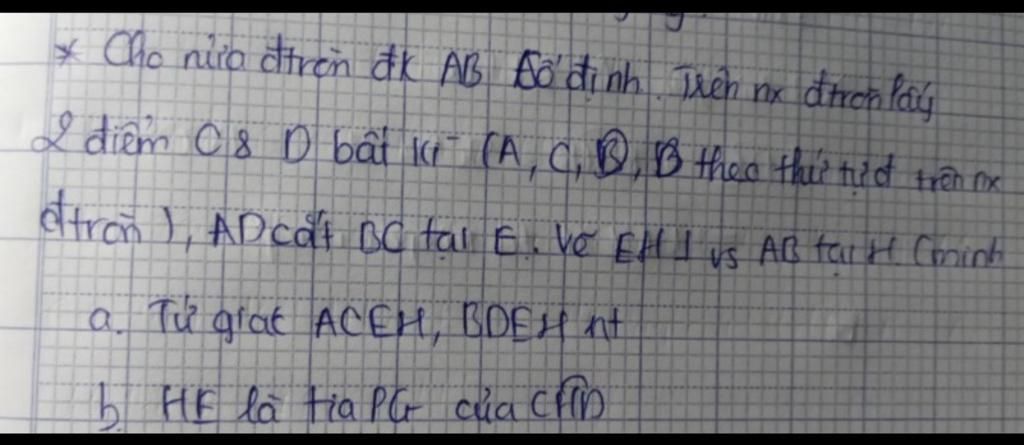 * Cho nửa đtròn đk AB cố định. Trên nx đtròn lấy
2 điểm C & D bất kì (A, C, D, B theo thứ tự đ trên nx
đtròn), AD cắt BC tại E. Vẽ EH ⊥ vs AB tại H. Cminh
a. Tứ giác ACEH, BDEH nt
b, HE là tia PG của CHD